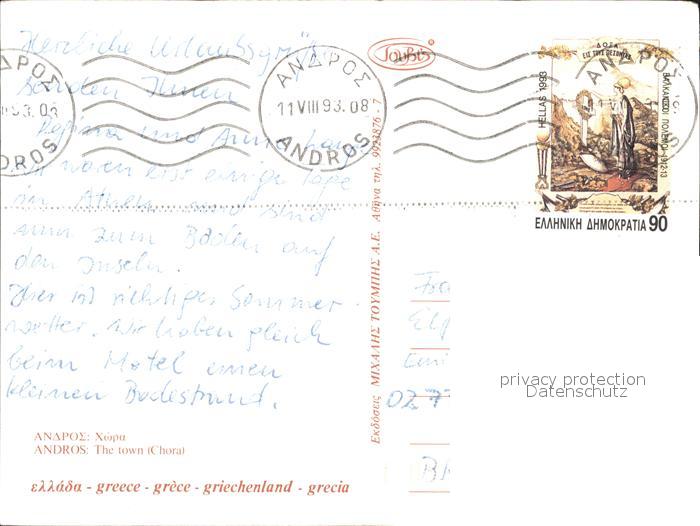 Herzliche Urlaubsgrüße
senden Ihnen
und
wir waren erst einige Tage
in Athen und sind
nun zum Baden auf
den Inseln.
Hier ist richtiges Sommer-
wetter. Wir haben gleich
beim Hotel einen
kleinen Badestrand.
ΑΝΔΡΟΣ: Χώρα
ANDROS: The town (Chora)
ελλάδα - greece - grèce - griechenland - grecia
ΑΝΔΡΟΣ
VIII 93.08
ANDROS
ΑΝΔΡΟΣ
11 VIII 93.08
ANDROS
Τουμπής
Εκδόσεις ΜΙΧΑΛΗΣ ΤΟΥΜΠΗΣ Α.Ε. Αθήνα τηλ. 9923876 - 7
ΔΟΞΑ
ΕΙΣ ΤΟΥΣ ΠΕΣΟΝΤΑΣ
HELLAS 1993
ΒΑΛΚΑΝΙΚΟΙ ΠΟΛΕΜΟΙ 1912-13
ΕΛΛΗΝΙΚΗ ΔΗΜΟΚΡΑΤΙΑ 90
privacy protection
Datenschutz